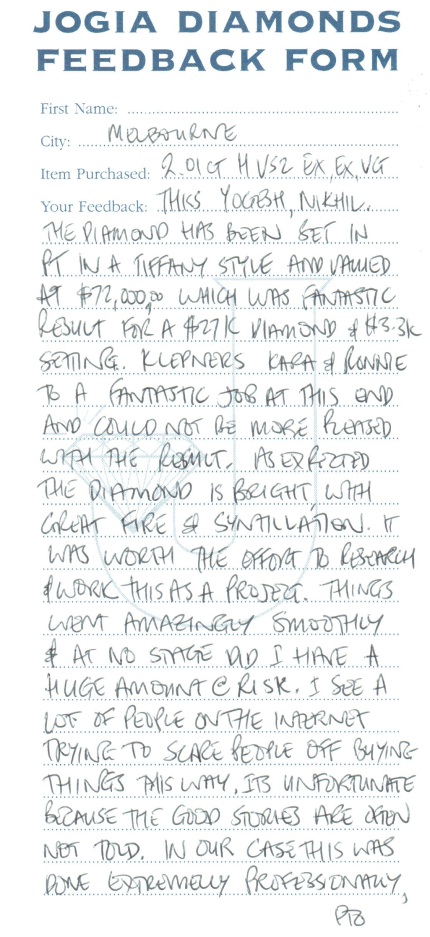 JOGIA DIAMONDS
FEEDBACK FORM
First Name:
City: MELBOURNE
Item Purchased: 2.01CT H VS2 EX, EX, VG
Your Feedback: THKS YOGESH, NIKHIL.
THE DIAMOND HAS BEEN SET IN
PT IN A TIFFANY STYLE AND VALUED
AT $72,000.00 WHICH WAS FANTASTIC
RESULT FOR A $27K DIAMOND & $3.3K
SETTING. KLEPNERS KARA & RONNIE
TO A FANTASTIC JOB AT THIS END
AND COULD NOT BE MORE PLEASED
WITH THE RESULT. AS EXPECTED
THE DIAMOND IS BRIGHT, WITH
GREAT FIRE & SYNTILLATION. IT
WAS WORTH THE EFFORT TO RESEARCH
& WORK THIS AS A PROJECT. THINGS
WENT AMAZINGLY SMOOTHLY
& AT NO STAGE DID I HAVE A
HUGE AMOUNT @ RISK. I SEE A
LOT OF PEOPLE ON THE INTERNET
TRYING TO SCARE PEOPLE OFF BUYING
THINGS THIS WAY, ITS UNFORTUNATE
BECAUSE THE GOOD STORIES ARE OFTEN
NOT TOLD. IN OUR CASE THIS WAS
DONE EXTREMELLY PROFESSIONALLY,
PTO